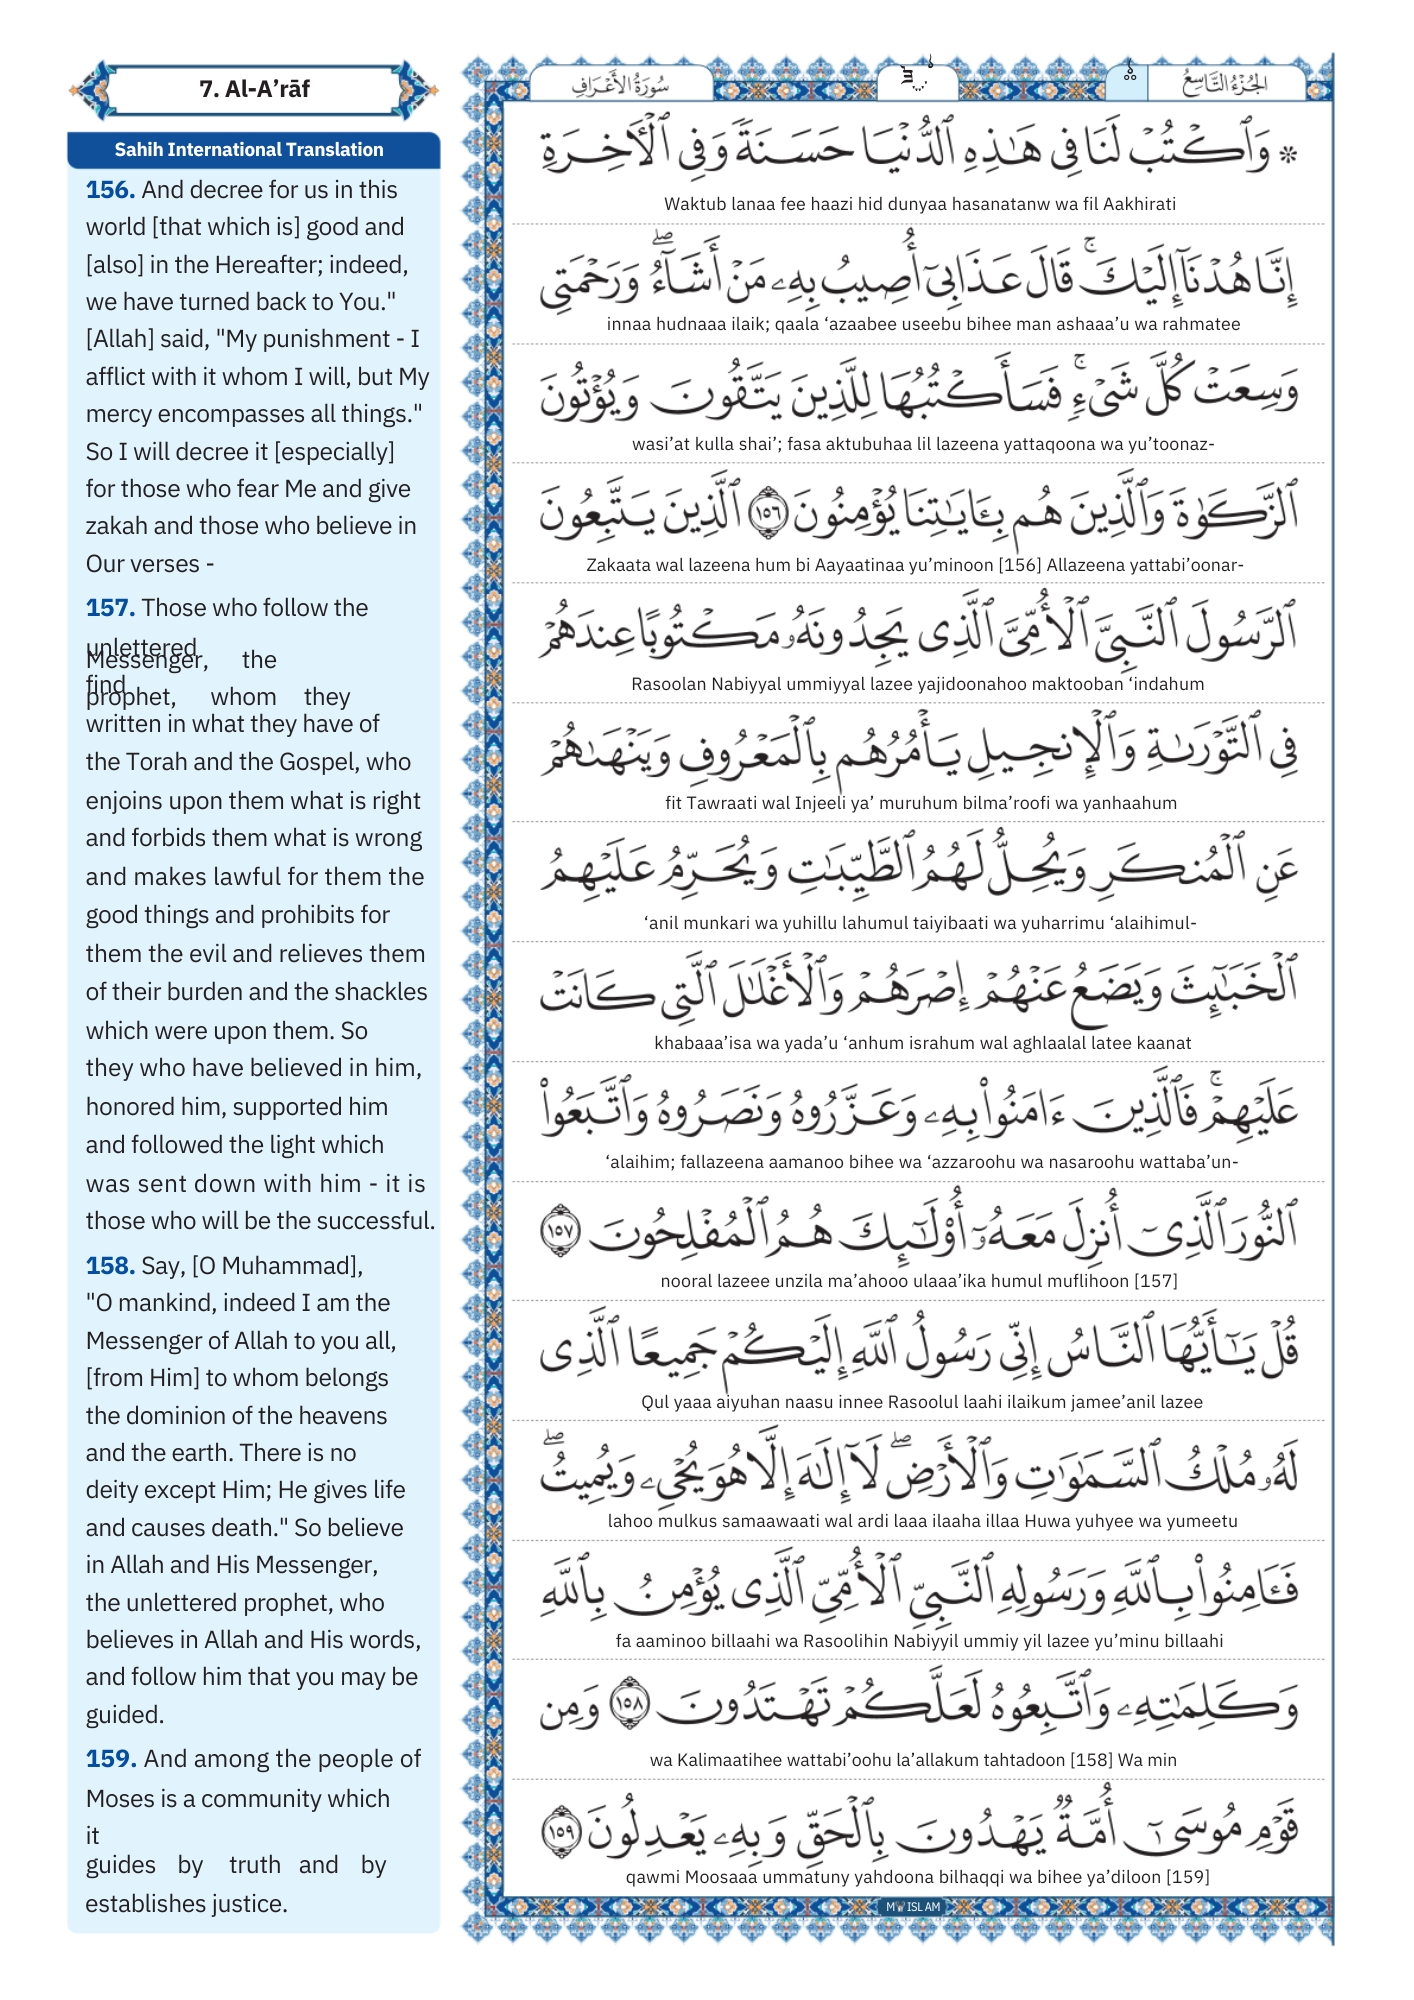 7. Al-A’rāf
Sahih International Translation
156. And decree for us in this
world [that which is] good and
[also] in the Hereafter; indeed,
we have turned back to You."
[Allah] said, "My punishment - I
afflict with it whom I will, but My
mercy encompasses all things."
So I will decree it [especially]
for those who fear Me and give
zakah and those who believe in
Our verses -
157. Those who follow the
unlettered
Messenger, the
find
prophet, whom they
written in what they have of
the Torah and the Gospel, who
enjoins upon them what is right
and forbids them what is wrong
and makes lawful for them the
good things and prohibits for
them the evil and relieves them
of their burden and the shackles
which were upon them. So
they who have believed in him,
honored him, supported him
and followed the light which
was sent down with him - it is
those who will be the successful.
158. Say, [O Muhammad],
"O mankind, indeed I am the
Messenger of Allah to you all,
[from Him] to whom belongs
the dominion of the heavens
and the earth. There is no
deity except Him; He gives life
and causes death." So believe
in Allah and His Messenger,
the unlettered prophet, who
believes in Allah and His words,
and follow him that you may be
guided.
159. And among the people of
Moses is a community which
it
guides by truth and by
establishes justice.
الجُزْءُ التَّاسِعُ
سُورَةُ الأَعْرَافِ
۞ وَٱكْتُبْ لَنَا فِى هَـٰذِهِ ٱلدُّنْيَا حَسَنَةً وَفِى ٱلْـَٔاخِرَةِ
Waktub lanaa fee haazi hid dunyaa hasanatanw wa fil Aakhirati
إِنَّا هُدْنَآ إِلَيْكَ ۚ قَالَ عَذَابِىٓ أُصِيبُ بِهِۦ مَنْ أَشَآءُ ۖ وَرَحْمَتِى
innaa hudnaaa ilaik; qaala ‘azaabee useebu bihee man ashaaa’u wa rahmatee
وَسِعَتْ كُلَّ شَىْءٍ ۚ فَسَأَكْتُبُهَا لِلَّذِينَ يَتَّقُونَ وَيُؤْتُونَ
wasi’at kulla shai’; fasa aktubuhaa lil lazeena yattaqoona wa yu’toonaz-
ٱلزَّكَوٰةَ وَٱلَّذِينَ هُم بِـَٔايَـٰتِنَا يُؤْمِنُونَ ١٥٦ ٱلَّذِينَ يَتَّبِعُونَ
Zakaata wal lazeena hum bi Aayaatinaa yu’minoon [156] Allazeena yattabi’oonar-
ٱلرَّسُولَ ٱلنَّبِىَّ ٱلْأُمِّىَّ ٱلَّذِى يَجِدُونَهُۥ مَكْتُوبًا عِندَهُمْ
Rasoolan Nabiyyal ummiyyal lazee yajidoonahoo maktooban ‘indahum
فِى ٱلتَّوْرَىٰةِ وَٱلْإِنجِيلِ يَأْمُرُهُم بِٱلْمَعْرُوفِ وَيَنْهَىٰهُمْ
fit Tawraati wal Injeeli ya’ muruhum bilma’roofi wa yanhaahum
عَنِ ٱلْمُنكَرِ وَيُحِلُّ لَهُمُ ٱلطَّيِّبَـٰتِ وَيُحَرِّمُ عَلَيْهِمُ
‘anil munkari wa yuhillu lahumul taiyibaati wa yuharrimu ‘alaihimul-
ٱلْخَبَـٰٓئِثَ وَيَضَعُ عَنْهُمْ إِصْرَهُمْ وَٱلْأَغْلَـٰلَ ٱلَّتِى كَانَتْ
khabaaa’isa wa yada’u ‘anhum israhum wal aghlaalal latee kaanat
عَلَيْهِمْ ۚ فَٱلَّذِينَ ءَامَنُوا۟ بِهِۦ وَعَزَّرُوهُ وَنَصَرُوهُ وَٱتَّبَعُوا۟
‘alaihim; fallazeena aamanoo bihee wa ‘azzaroohu wa nasaroohu wattaba’un-
ٱلنُّورَ ٱلَّذِىٓ أُنزِلَ مَعَهُۥٓ أُو۟لَـٰٓئِكَ هُمُ ٱلْمُفْلِحُونَ ١٥٧
nooral lazeee unzila ma’ahooo ulaaa’ika humul muflihoon [157]
قُلْ يَـٰٓأَيُّهَا ٱلنَّاسُ إِنِّى رَسُولُ ٱللَّهِ إِلَيْكُمْ جَمِيعًا ٱلَّذِى
Qul yaaa aiyuhan naasu innee Rasoolul laahi ilaikum jamee’anil lazee
لَهُۥ مُلْكُ ٱلسَّمَـٰوَٰتِ وَٱلْأَرْضِ ۖ لَآ إِلَـٰهَ إِلَّا هُوَ يُحْىِۦ وَيُمِيتُ ۖ
lahoo mulkus samaawaati wal ardi laaa ilaaha illaa Huwa yuhyee wa yumeetu
فَـَٔامِنُوا۟ بِٱللَّهِ وَرَسُولِهِ ٱلنَّبِىِّ ٱلْأُمِّىِّ ٱلَّذِى يُؤْمِنُ بِٱللَّهِ
fa aaminoo billaahi wa Rasoolihin Nabiyyil ummiy yil lazee yu’minu billaahi
وَكَلِمَـٰتِهِۦ وَٱتَّبِعُوهُ لَعَلَّكُمْ تَهْتَدُونَ ١٥٨ وَمِن
wa Kalimaatihee wattabi’oohu la’allakum tahtadoon [158] Wa min
قَوْمِ مُوسَىٰٓ أُمَّةٌ يَهْدُونَ بِٱلْحَقِّ وَبِهِۦ يَعْدِلُونَ ١٥٩
qawmi Moosaaa ummatuny yahdoona bilhaqqi wa bihee ya’diloon [159]